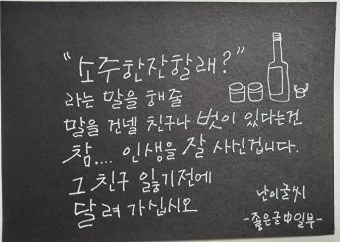 "소주한잔할래?"
라는 말을 해줄
말을 건넬 친구나 벗이 있다는건
참.... 인생을 잘 사신겁니다.
그 친구 잃기전에
달려 가십시오
난이글씨
-좋은글中일부-